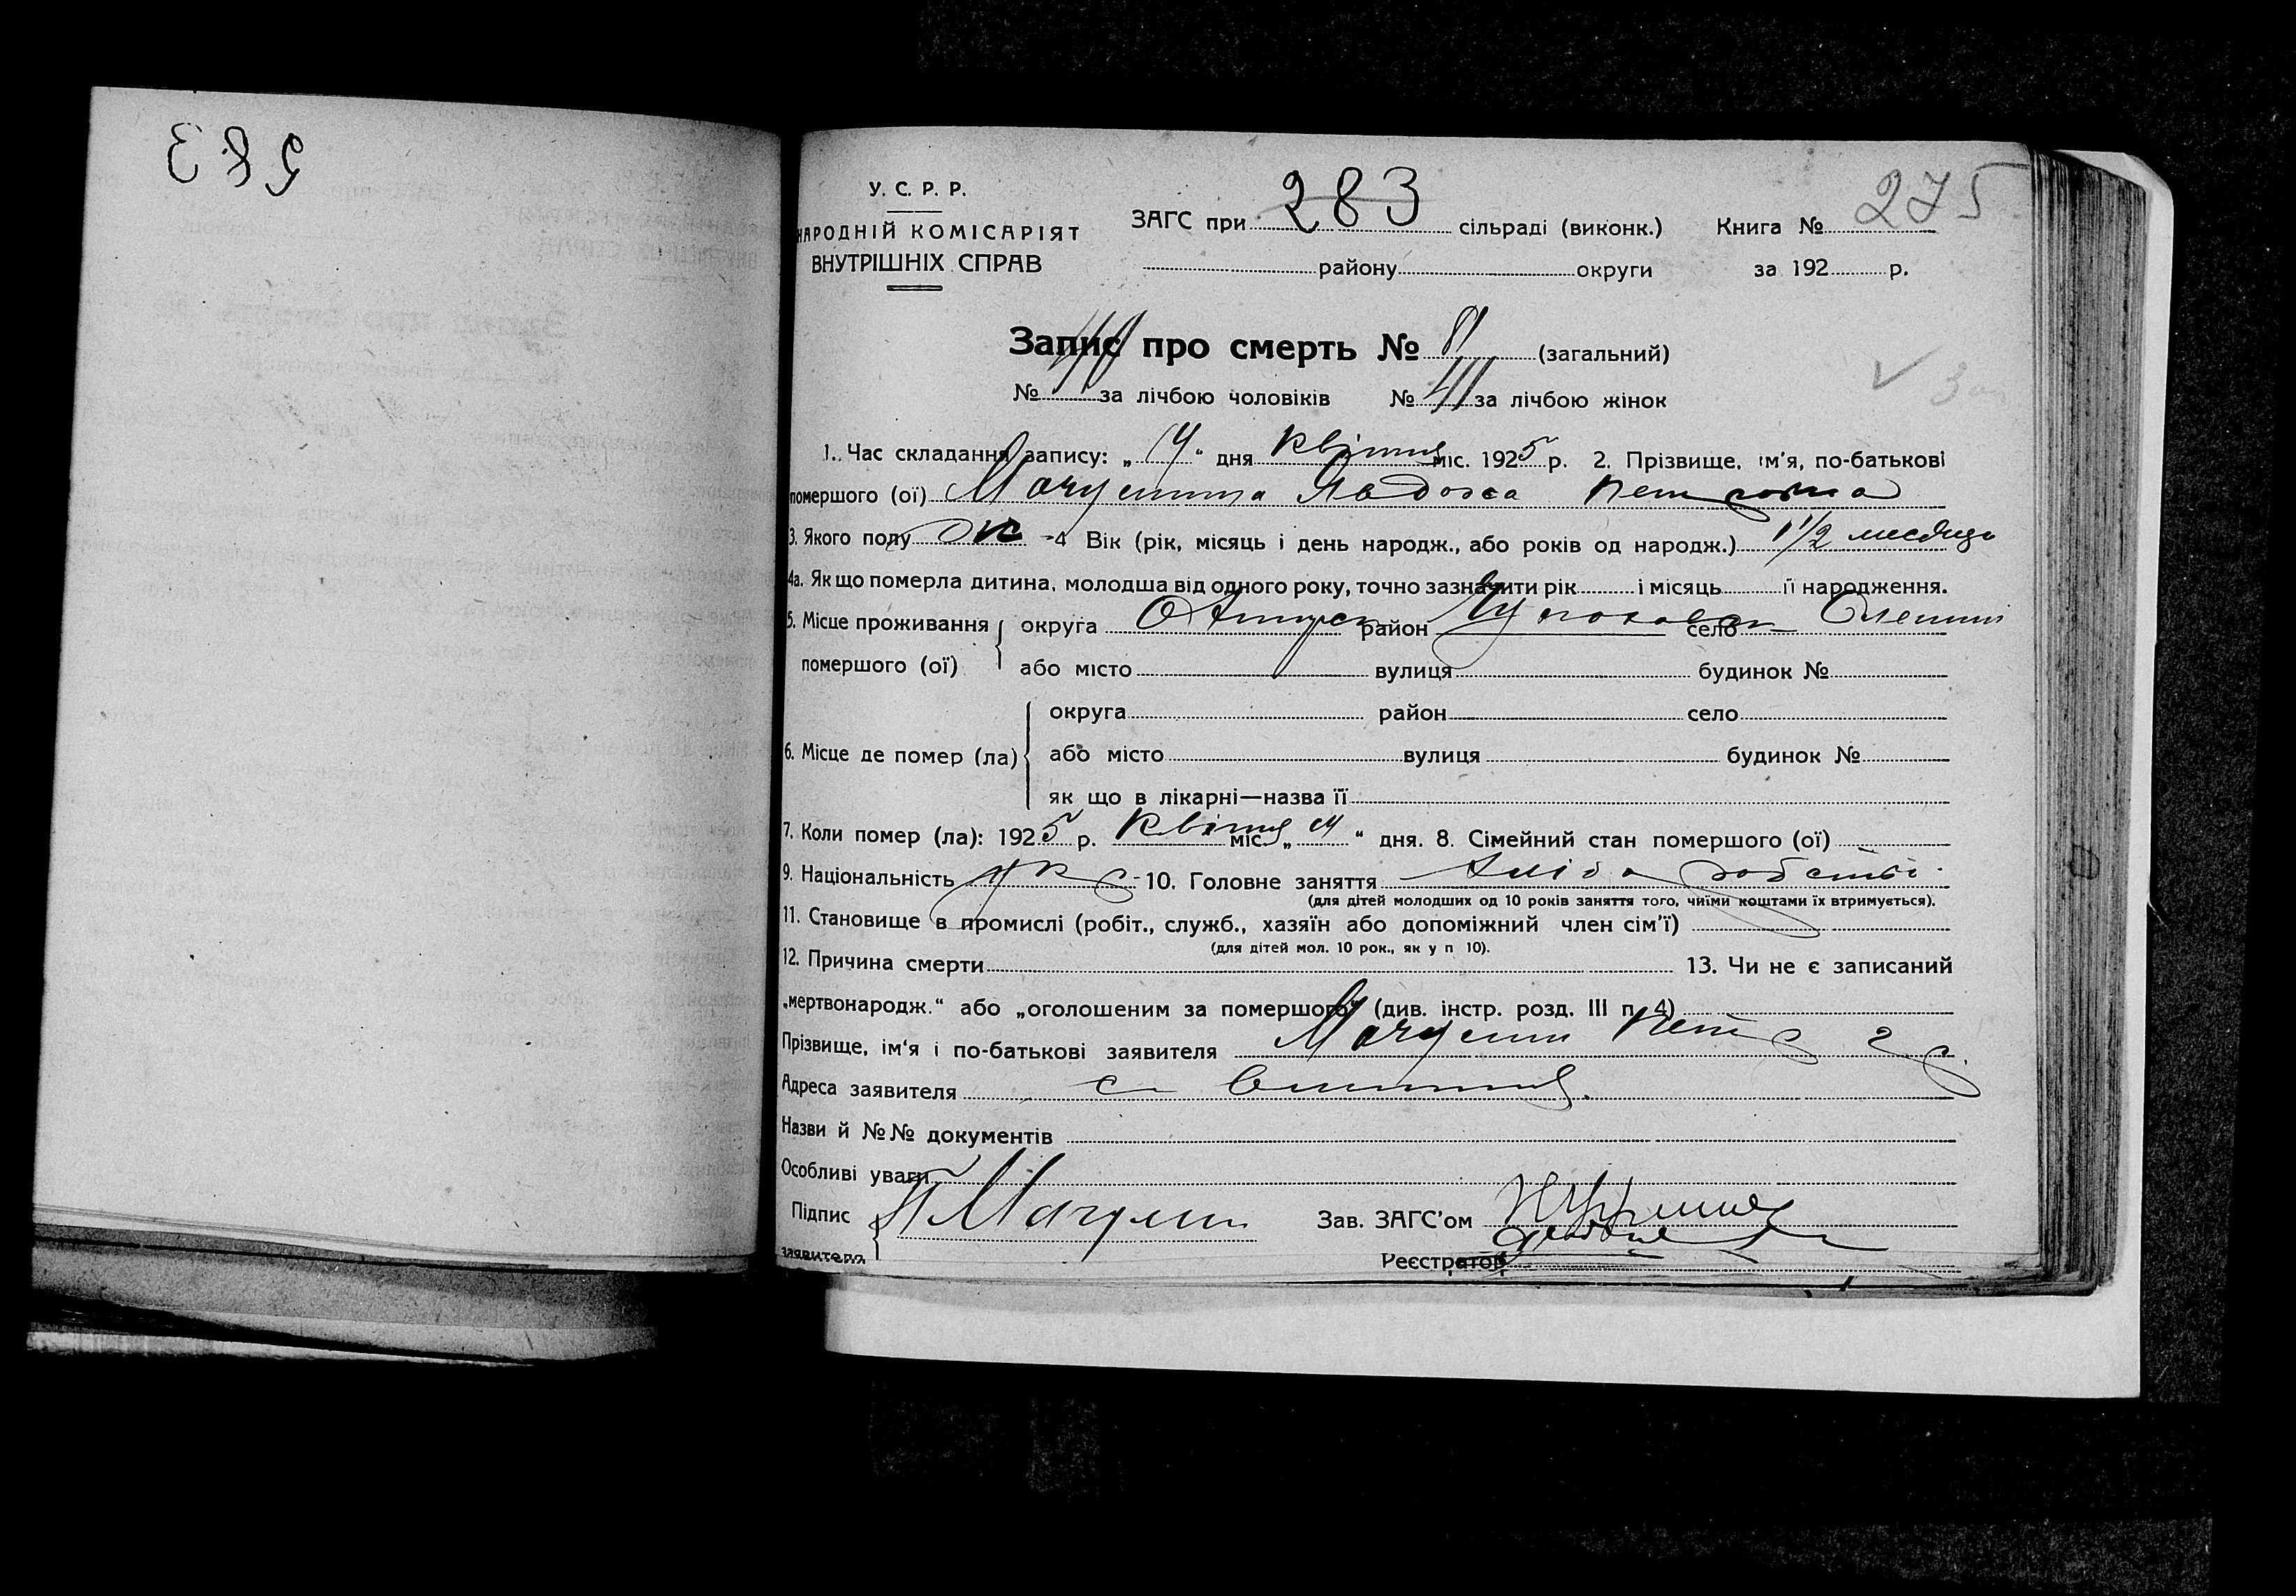 583
У. С. Р. Р.
НАРОДНІЙ КОМІСАРІЯТ
ВНУТРІШНІХ СПРАВ
ЗАГС при 283 сільраді (виконк.) Книга № 275
району округи за 192 р.
Запис про смерть № (загальний)
№ за лічбою чоловіків № 41 за лічбою жінок
1. Час складання запису: „14“ дня Квітня міс. 1925 р. 2. Прізвище, ім'я, по-батькові
помершого (ої) Явдоха Петровна
3. Якого полу Ж 4 Вік (рік, місяць і день народж., або років од народж.) 1 1/2 месяца
4а. Як що померла дитина, молодша від одного року, точно зазначити рік і місяць її народження.
5. Місце проживання округа район село
помершого (ої) або місто вулиця будинок №
округа район село
6. Місце де помер (ла) або місто вулиця будинок №
як що в лікарні—назва її
7. Коли помер (ла): 1925 р. Квітня міс. „14“ дня. 8. Сімейний стан помершого (ої)
9. Національність укр 10. Головне заняття хліборобство
(для дітей молодших од 10 років заняття того, чиїми коштами їх втримується).
11. Становище в промислі (робіт., служб., хазяїн або допоміжний член сім'ї)
(для дітей мол. 10 рок., як у п 10).
12. Причина смерти 13. Чи не є записаний
„мертвонародж.“ або „оголошеним за помершого“ (див. інстр. розд. III п. 4)
Прізвище, ім'я і по-батькові заявителя Петр
Адреса заявителя с
Назви й №№ документів
Особливі уваги
Підпис Зав. ЗАГС'ом
заявителя Реєстратор